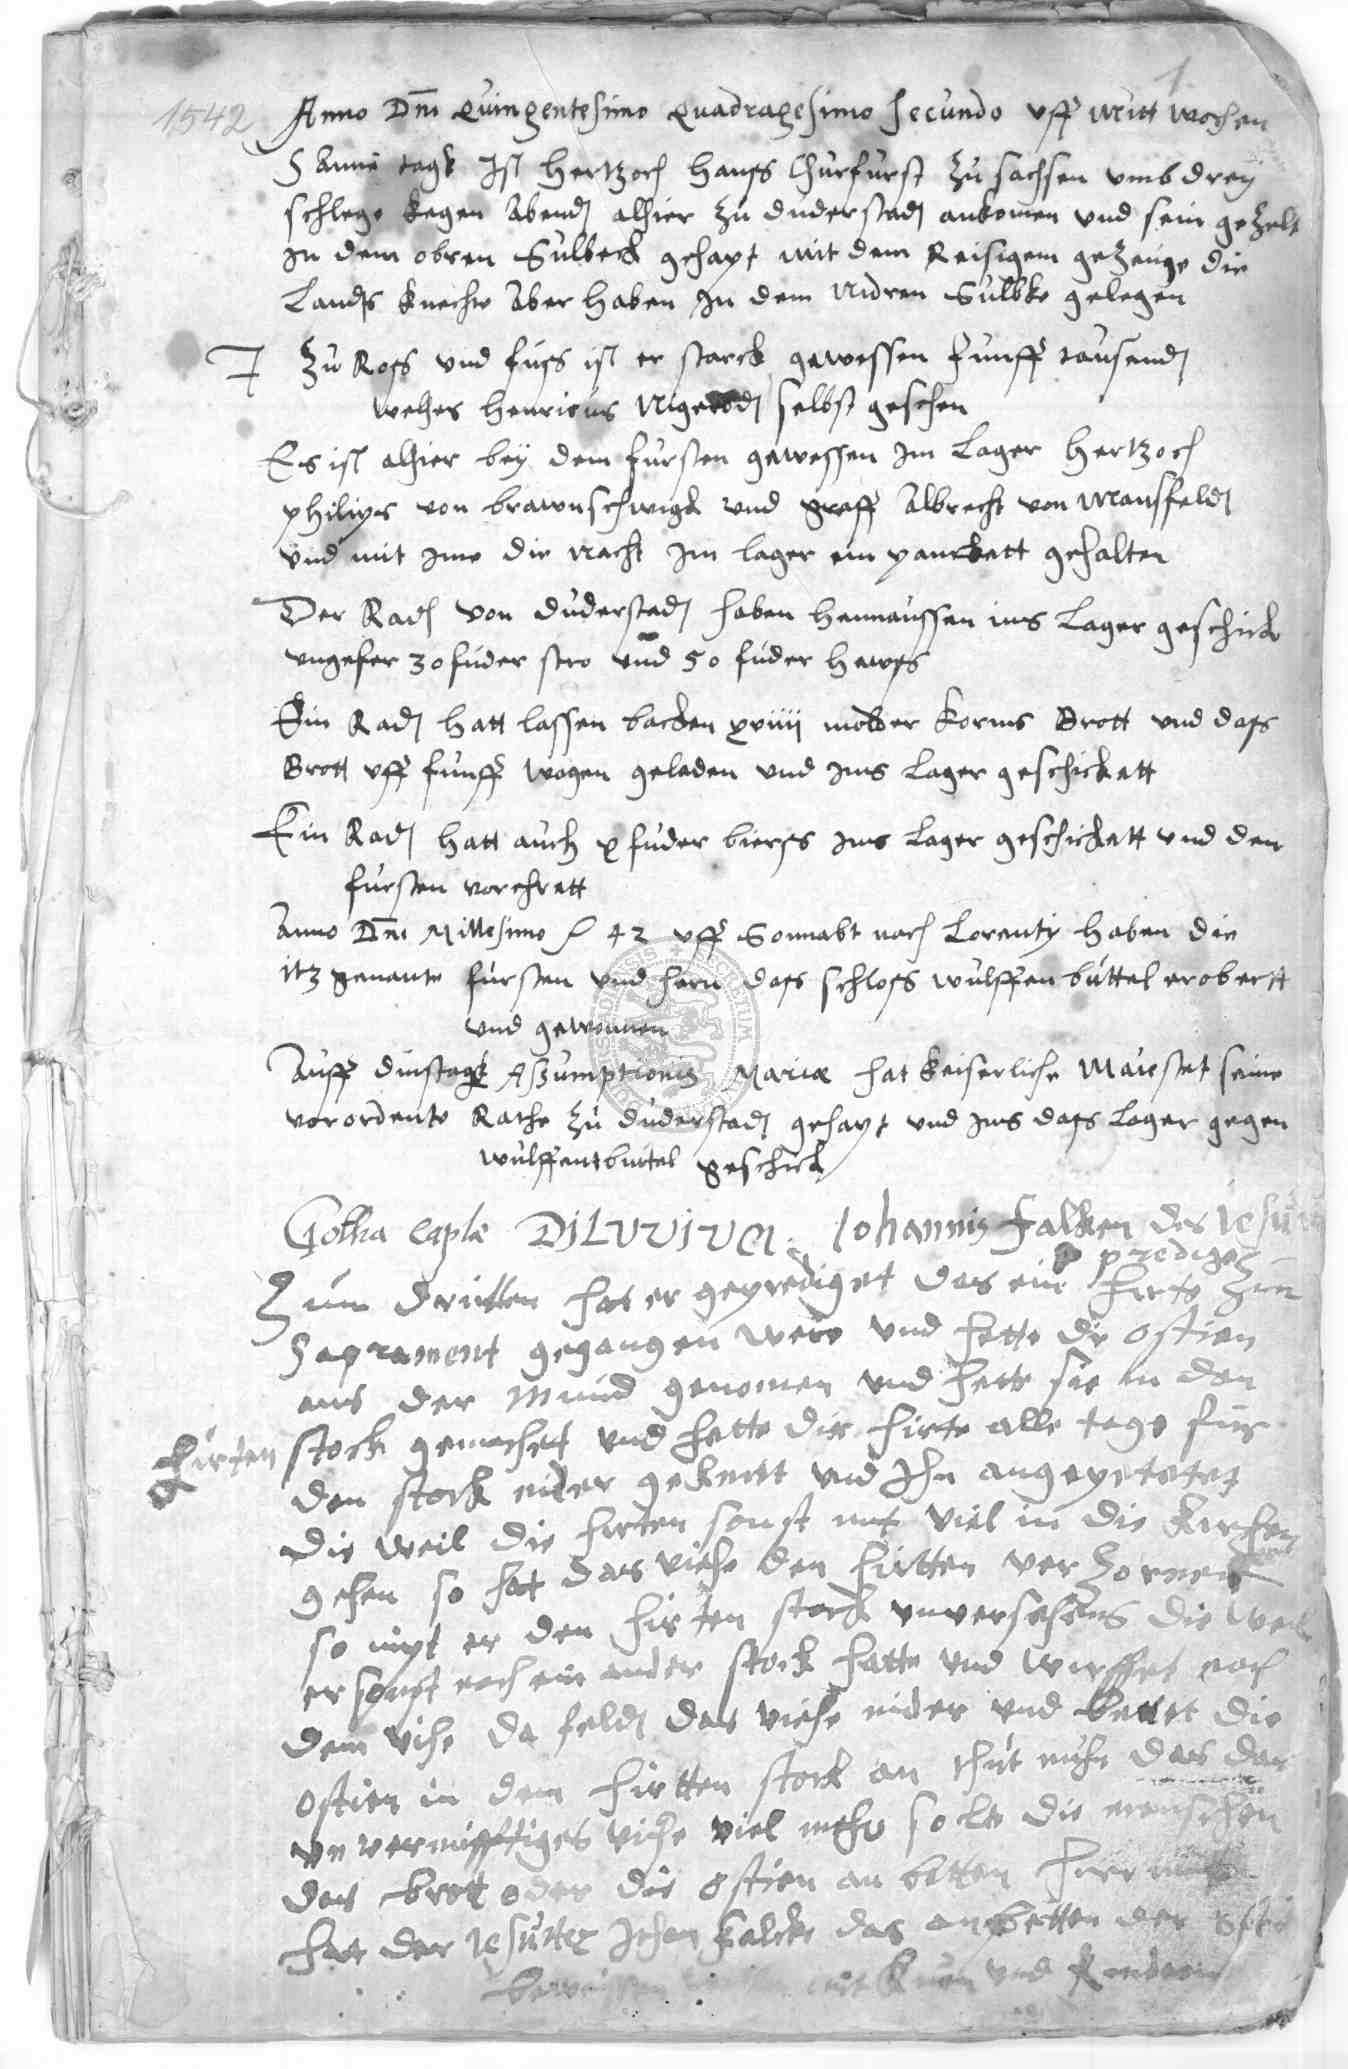 1
1542
Anno Dm̄ Quingentesimo Quadragesimo secundo uff Mitt wochen
S Anne tagk Ist Hertzoch Hanss Churfurst zu sachsen umb drey
schlege kegen Abendt alhier zu duderstadt ankomen und sein gezelt
In dem obren Sulbeck gehapt mit dem Reisigem gezeuge die
Landts knechte Aber haben In dem Nidren Sulbke gelegen
Zu Ross und fuss ist er starck gewessen funff tausendt
welhes Henricus selbst gesehen
Es ist alhier bey dem fursten gewessen Im Lager Hertzoch
philips von brawnschwigk und graff Albrecht von Mansfeldt
und mit Ime die Nacht Im lager ein panckett gehalten
Der Radt von duderstadt haben hennaussen ins Lager geschickt
ungefer 30 fuder stro und 50 fuder hewes
Ein Radt hatt lassen backen xviiij molder Korns Brott und dass
Brott uff funff wagen geladen und Ins Lager geschickett
Ein Radt hatt auch x fuder bierss Ins Lager geschickett und den
fursten vorehrett
Anno Dm̄ Millesimo 42 uff Sonnabt nach Lorenty haben die
itz genante fursten und hern dass schloss wulffenbuttel erobertt
und gewonnen
Auff dinstagk Assumptionis Mariæ hat keiserliche Maiestat seine
vorordente Rathe zu duderstadt gehapt und Ins dass Lager gegen
wulffentbuttel geschickt
DILUVIUM Johannis Falken des Jesu
prediget
Zum dritten hat er geprediget das ein hirte zum
Saprament gegangen were und hette die ostien
aus der Mund genomen und hette sie in den
hirten
stock gemachet und hette die hirte alle tage fur
den stock nider gekniet und Ihn angepetetet
die weil die hirten sonst nit viel in die Kirchen
gehen so hat das viehe den hirtten verzornet
so nipt er den hirten stock unversehens die weil
er sonst noch ein ander stock hatte und wirffet nach
dem vihe da feldt das viehe nider und bettet die
ostien in dem hirtten stock an thut nuhn das das
unvernufftiges viehe viel mehr solte die menschen
das brott oder die ostien an betten hir mit
hat der Jesuiter Johan Falcke das anbetten der
und Rindern